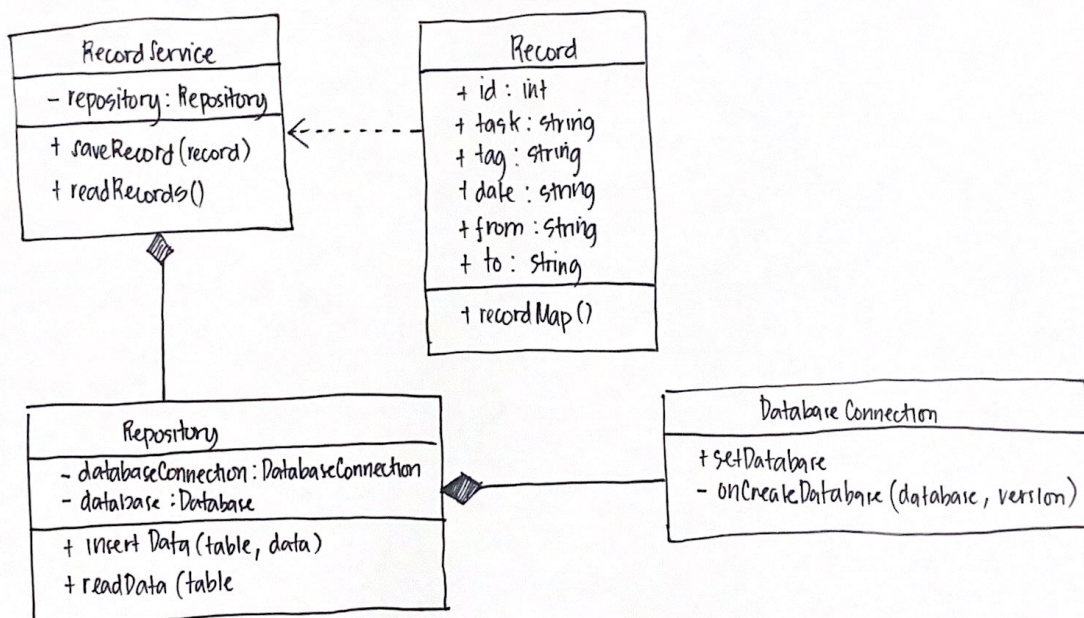 RecordService
- repository: Repository
+ saveRecord(record)
+ readRecords()
Record
+ id: int
+ task: string
+ tag: string
+ date: string
+ from: string
+ to: string
+ recordMap()
Repository
- databaseConnection: DatabaseConnection
- database: Database
+ insert Data(table, data)
+ readData(table
Database Connection
+ setDatabase
- onCreateDatabase(database, version)